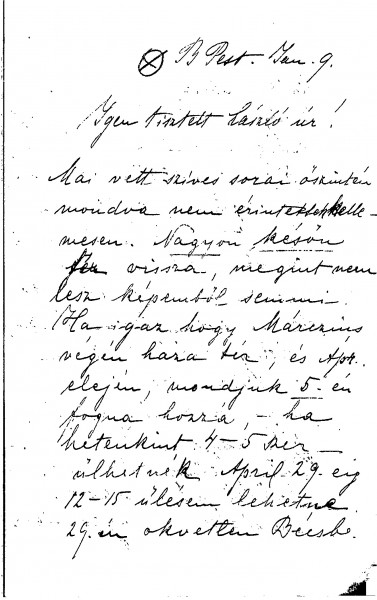 B Pest. Jan. 9.
Igen tisztelt László úr!
Mai vett szives sorai őszintén
mondva nem érintettek kelle-
mesen. Nagyon későn
tér vissza, megint nem
lesz képemből semmi.
Ha igaz hogy Márczius
végén haza tér, és Apr.
elején, mondjuk 5.-én
fogna hozza, – ha
hetenkint 4–5ször
ülhetnék April 29.eig
12–15 ülésem lehetne
29.én okvetlen Bécsbe